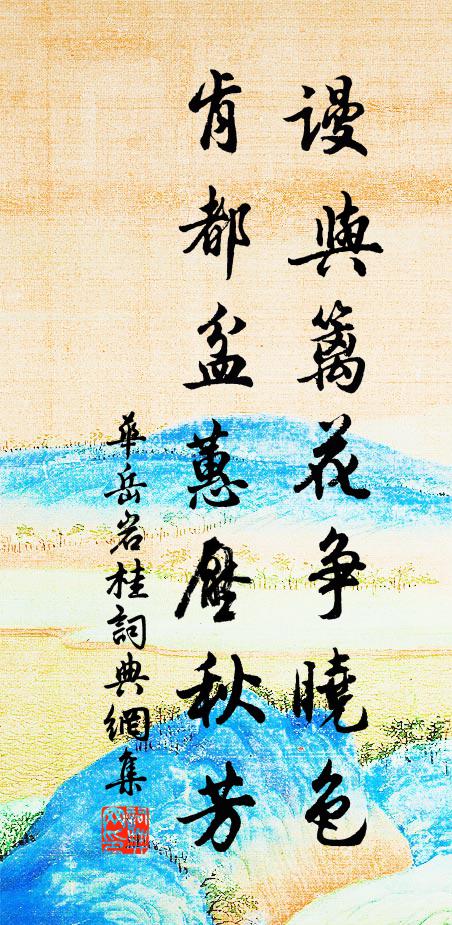 謾與籬花争曉色
肯都盆蕙壓秋芳
華岳岩桂詞典網集